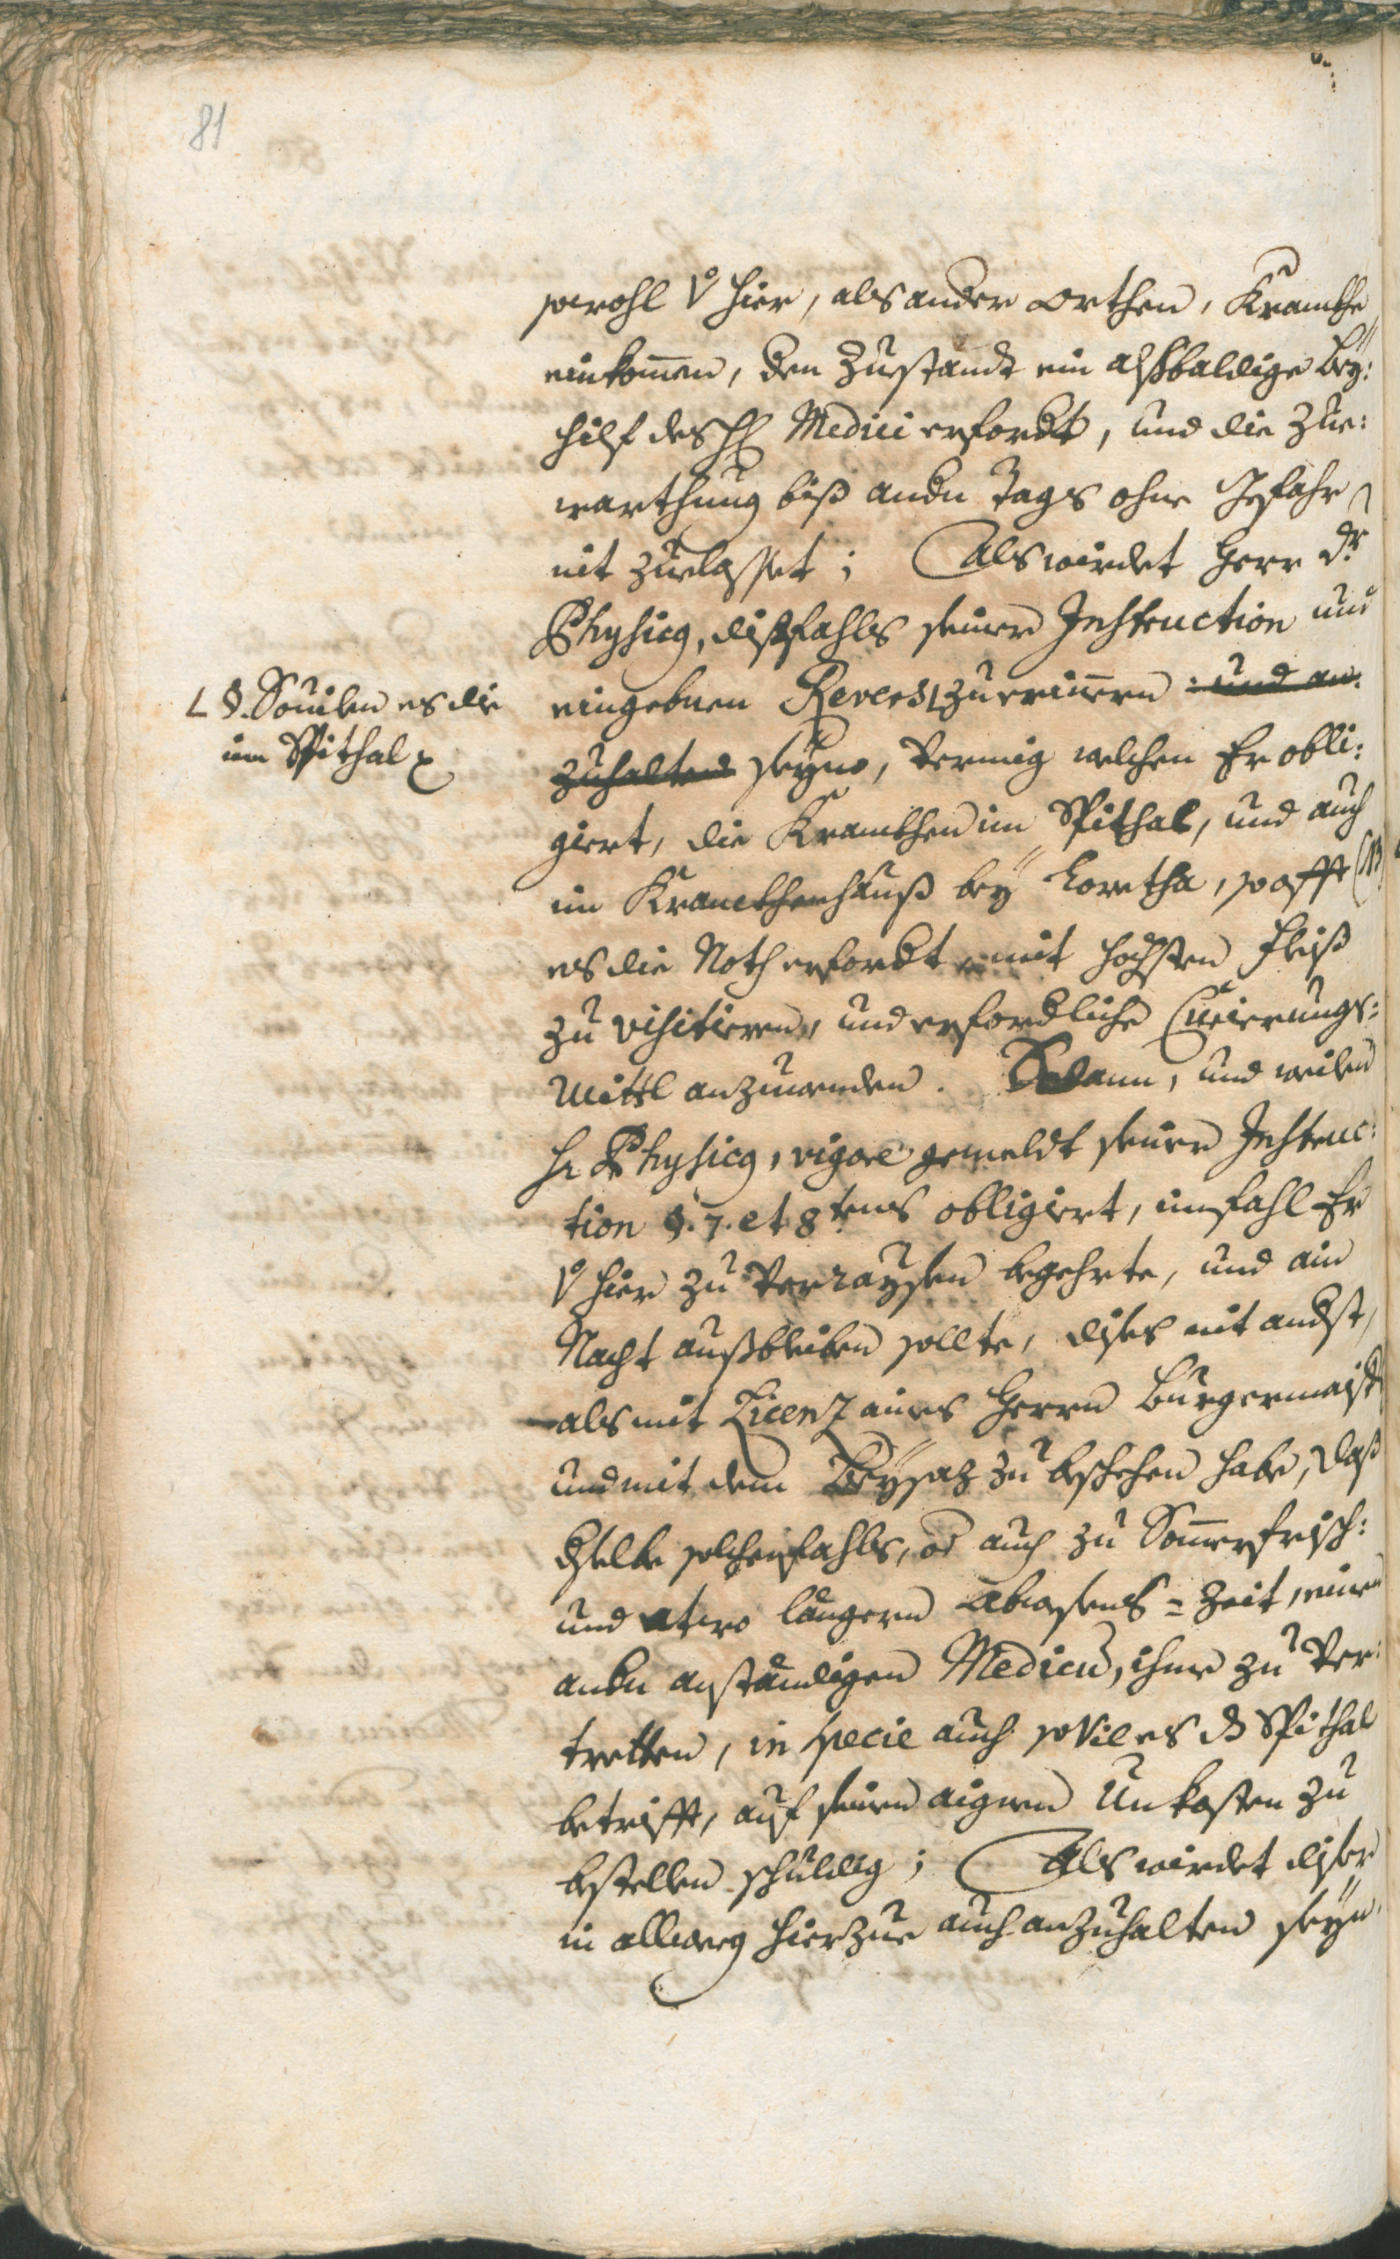 81
sowohl v hier, als ander Orthen, Krankhe
einkom̄en, den Zustandt ein alßbaldige Bey:
hilf des H Medici erfordt, und die Zue:
warthung biß andn Tags ohne Gefahr
nit zuelasset; Als wirdet Herr Dr
Physicg, dißfahls seiner Instruction und
eingebnen Revers zu erinern und an:
zuhalten seyn, Vermig welchen Er obli:
giert, die Krankhen im Spithal, und auch
im Krankhenhauß bey Loretha, so offt
es die Noth erfordt, mit höchsten Fleiß
zu visitieren, und erfordliche Curierungs:
Mittl anzuwenden. Sodann, und weilen
Hr Physicg, vigore gemeldt seiner Instruc:
tion §. 7. et 8tens obligiert, im fahl Er
v hier zu Verraysen begehrte, und ain
Nacht außbleiben sollte, dises nit andst,
als mit Licenz aines Herrn Burgermaistr
und mit dem Beysaz zu beschehen habe, daß
dselbe solchenfahls, od auch zu Som̄erfrisch:
und etwo längern Abwesens=Zeit, einen
andn anständigen Medicu, ihne zu Ver:
tretten, in specie auch sovil es ds Spithal
betrifft, auf seinen aignen Unkosten zu
bestellen schuldig; Als wirdet diser
in allweg hierzue auch anzuhalten seyn.
L §. Souilen es die
im Spithal